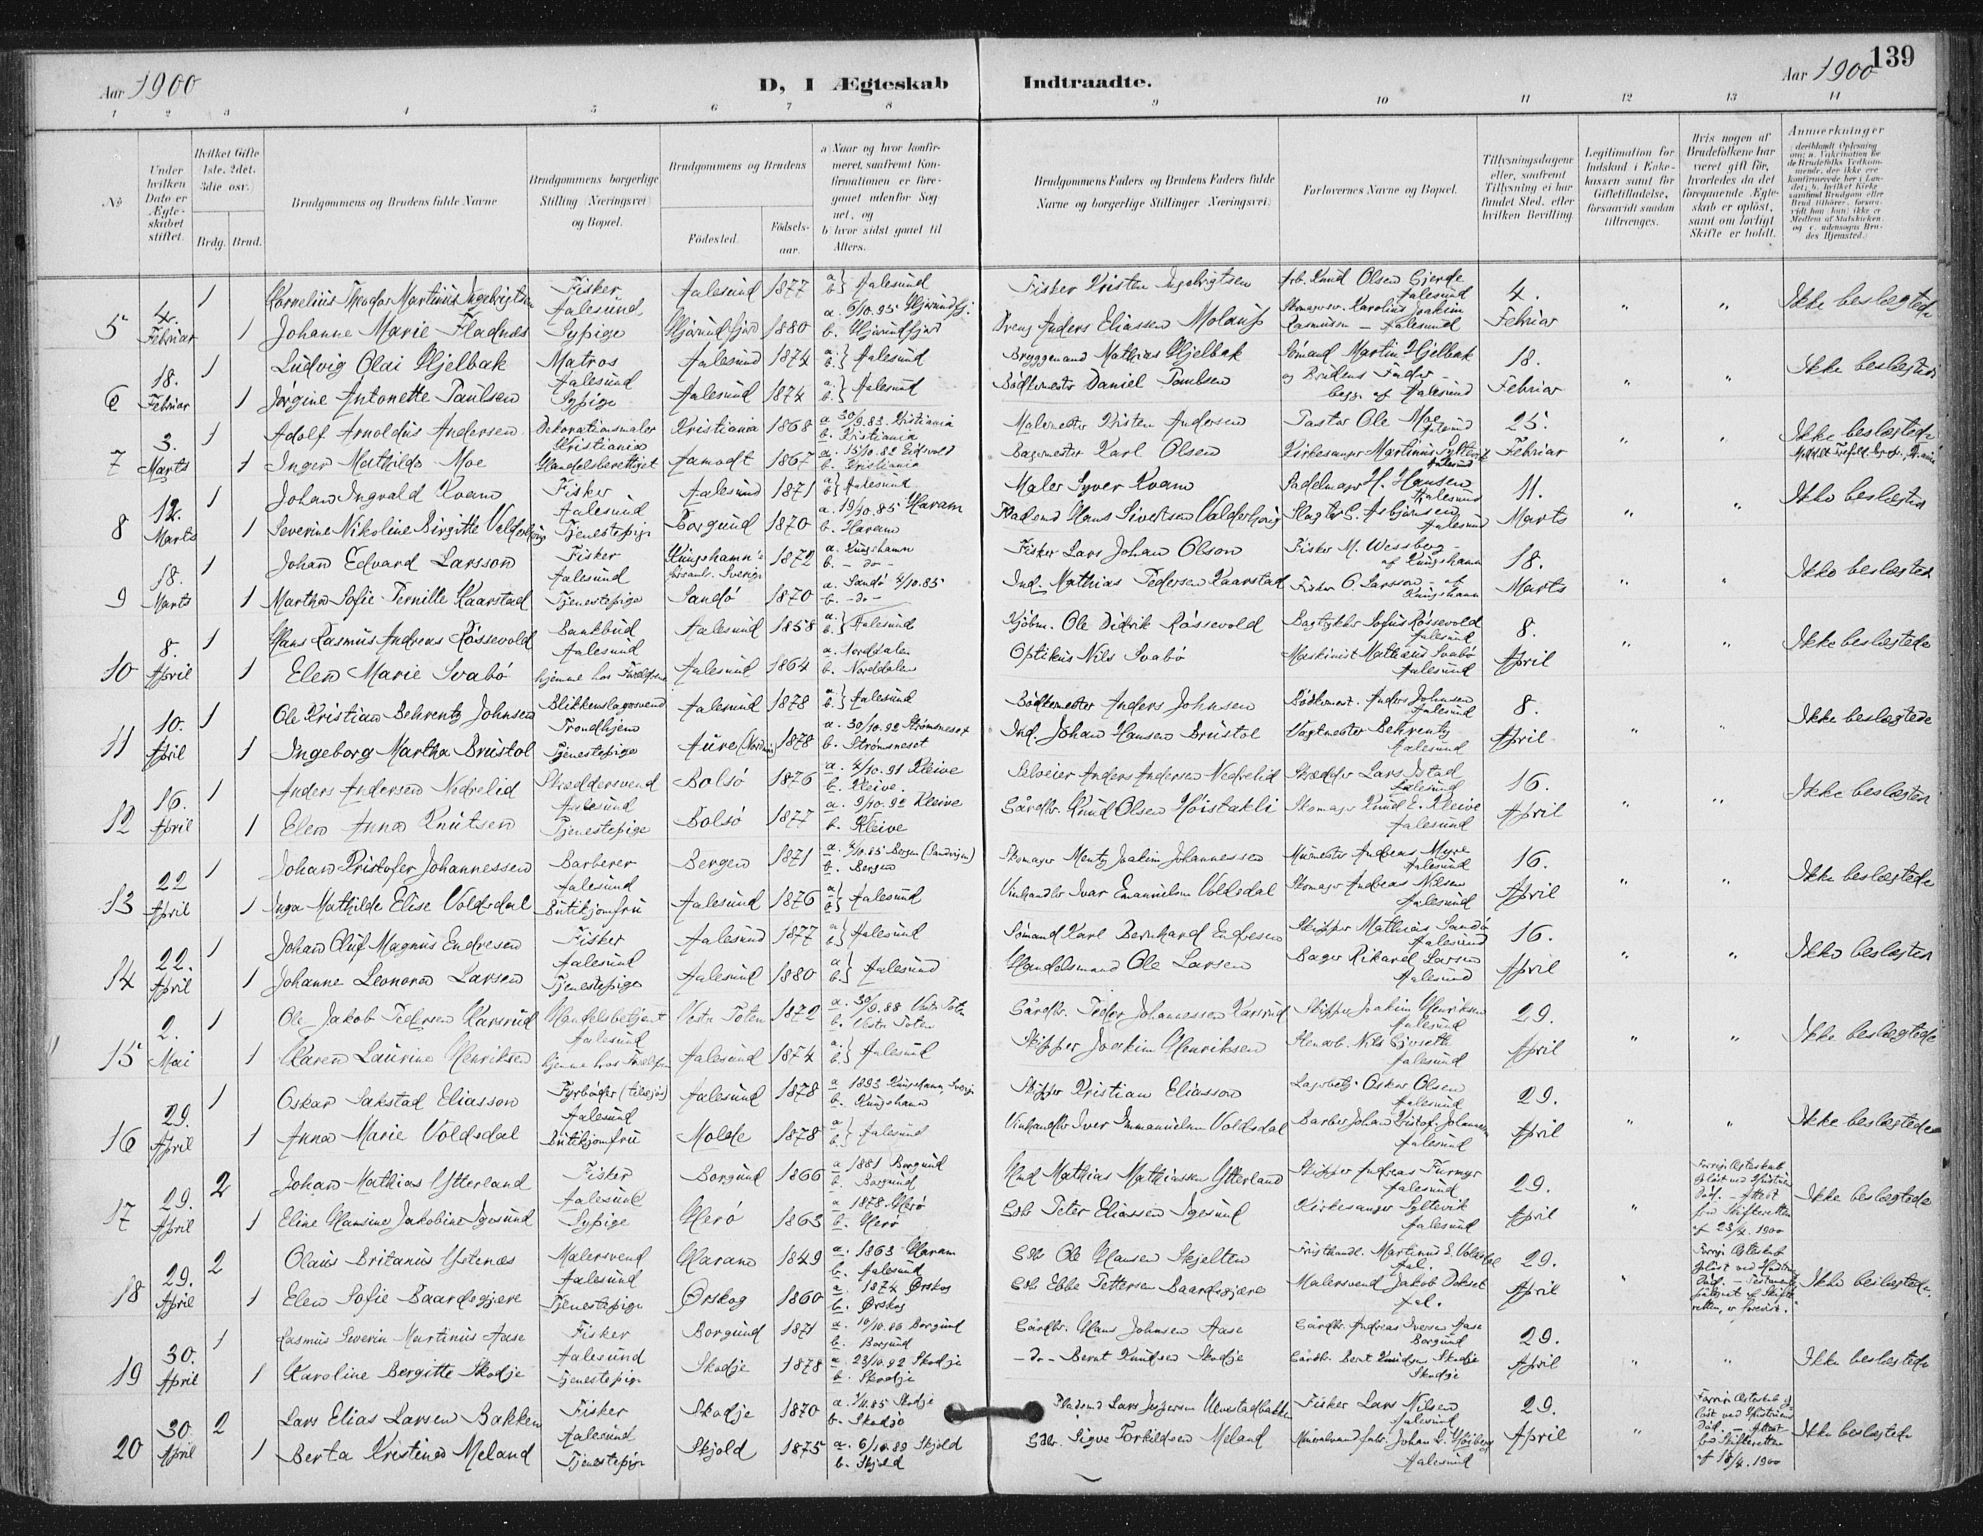 139
Aar 1900 D, I Ægteskab Indtraadte. Aar 1900
1 2 3 4 5 6 7 8 9 10 11 12 13 14
No
Under hvilken Dato er Ægteskabet stiftet.
Hvilket Gifte (1ste, 2det, 3die osv.)
Brdg. Brud.
Brudgommens og Brudens fulde Navne
Brudgommens borgerlige Stilling (Næringsvei) og Bopæl.
Brudgommens og Brudens
Fødested. Fødselsaar.
a) Naar og hvor konfirmeret, saafremt Konfirmationen er foregaaet udenfor Sognet, og
b) hvor sidst gaaet til Alters.
Brudgommens Faders og Brudens Faders fulde Navne og borgerlige Stillinger (Næringsvei)
Forlovernes Navne og Bopæl.
Tillysningsdagene eller, saafremt Tillysning ei har fundet Sted, efter hvilken Bevilling
Legitimation for Indskud i Enkekassen samt for Giftetilladelse, forsaavidt saadan tiltrænges.
Hvis nogen af Brudefolkene har været gift før, hvorledes da det foregaaende Ægteskab er opløst, samt om lovligt Skifte er holdt.
Anmærkninger
5 4. Februar 1 Kornelius Theodor Martinius Ingebrigtsen Fisker Aalesund Aalesund 1877 a. b. } Aalesund Fisker Kristen Ingebrigtsen Arb. Knud Olsen Gjerde Aalesund 4. Februar " " Ikke beslægtede
1 Johanne Marie Fladnæs Sypige Hjørundfjord 1880 a. 6/10.95 Hjørundfj. b. Hjørundfjord Anders Eliassen Molaup Karolius Joakim Rasmussen - Aalesund
6 18. Februar 1 Ludvig Olai Hjelbak Matros Aalesund Aalesund 1874 a. b. } Aalesund Bryggemand Mathias Hjelbak Sømand Martin Hjelbak 18. Februar " " Ikke beslægtede
1 Jørgine Antonette Paulsen Sypige Aalesund 1874 a. b. } Aalesund Bødkermester Daniel Paulsen og Brudens Fader - begge af Aalesund
7 3. Marts 1 Adolf Arnoldus Andersen Dekorationsmaler Kristiania Kristiania 1868 a. 30/9.83 Kristiania b. Kristiania Malermester Kristen Andersen Pastor Ole Moe 25. Februar " " Ikke beslægtede
1 Inger Mathilde Moe Handelsberettiget Aamodt 1867 a. 15/10.82 Eidsvold b. Kristiania Bagermester Karl Olsen Kirkesanger Martinus Syltevik Aalesund
8 12. Marts 1 Johan Ingvald Kvam Fisker Aalesund Aalesund 1871 a. b. } Aalesund Maler Syver Kvam Sadelmager H. Hansen Aalesund 11. Marts " " Ikke beslægtede
1 Severine Nikoline Birgitte Valderhaug Tjenestepige Borgund 1870 a. 19/10.85 Haram b. Haram Hans Sivertsen Valderhaug Slagter C. Asbjørnsen Aalesund
9 18. Marts 1 Johan Edvard Larsson Fisker Aalesund Kungshamn's Sverige 1872 a. Kungshamn b. - do - Fisker Lars Johan Olson Fisker M. Wessberg - af Kungshamn 18. Marts " " Ikke beslægtede
1 Martha Sofie Pernille Kaarstad Tjenestepige Sandø 1870 a. Sandø 4/10.85 b. - do - Ind. Mathias Pedersen Kaarstad Fisker O. Larsson - af Kungshamn
10 8. April 1 Hans Rasmus Andreas Røssevold Bankbud Aalesund Aalesund 1858 a. b. } Aalesund Kjøbm. Ole Didrik Røssevold Sofus Røssevold Aalesund 8. April " " Ikke beslægtede
1 Elen Marie Svabø hjemme hos Forældrene Aalesund 1864 a. Norddalen b. Norddalen Optikus Nils Svabø Maskinist Mathias Svabø Aalesund
11 10. April 1 Ole Kristian Behrentz Johnsen Blikkenslagersvend Trondhjem Aalesund 1878 a. b. } Aalesund Bødkermester Anders Johnsen Bødkermest. Anders Johnsen Aalesund 8. April " " Ikke beslægtede
1 Ingeborg Martha Brustol Tjenestepige Aure 1878 a. 30/10.92 Strømsneset b. Strømsneset Ind. Johan Hansen Brustol Vagtmester Behrentz Aalesund
12 16. April 1 Anders Andersen Nedrelid Skreddersvend Aalesund Bolsø 1876 a. 4/10.91 Kleive b. Kleive. Selveier Anders Andersen Nedrelid Skrædder Lars Istad Aalesund 16. April " " Ikke beslægtede
1 Elen Anna Knutsen Tjenestepige Bolsø 1877 a. 9/10.92 Kleive b. Kleive Gårdbr. Knud Olsen Høistakli Skomager Knud E. Kleive Aalesund
13 22 April 1 Johan Kristofer Johannessen Barberer Aalesund Bergen 1871 a. 4/10.85 Bergen (Sandviken) b. Bergen Skomager Mentz Joakim Johannessen Murmester Andreas Myre Aalesund 16. April " " Ikke beslægtede
1 Inga Mathilde Elise Voldsdal Butikjomfru Aalesund 1876 a. b. } Aalesund Vinhandler Ivar Emanuelsen Voldsdal Skomager Andreas Nilsen Aalesund
14 22. April 1 Johan Oluf Magnus Endresen Fisker Aalesund Aalesund 1877 a. b. } Aalesund Sømand Karl Bernhard Endresen Skipper Mathias Sandø Aalesund 16. April " " Ikke beslægtede
1 Johanne Leonora Larsen Tjenestepige Aalesund 1880 a. b. } Aalesund Handelsmand Ole Larsen Bager Rikard Larsen Aalesund
15 2. Mai 1 Ole Jakob Pedersen Karsrud Handelsbetjent Aalesund Vestre Toten 1872 a. 30/9.88 Vestr Toten b. Vestr Toten Gårdbr. Peder Johannessen Karsrud Skipper Joakim Henriksen Aalesund 29. April " " Ikke beslægtede
1 Karen Laurine Henriksen hjemme hos Forældrene Aalesund 1874 a. b. } Aalesund Skipper Joakim Henriksen Stenarb. Nils Gjerseth Aalesund
16 29. April 1 Oskar Sakstad Eliasson Fyrbøder (tilsjøs) Aalesund Aalesund 1878 a. 1893 Kungshamn, Sverige b. Kungshamn Skipper Kristian Eliasson Lagerbetj. Oskar Olsen Aalesund 29. April " " Ikke beslægtede
1 Anna Marie Voldsdal Butikjomfru Molde 1878 a. b. } Aalesund Vinhandler Iver Immanuelsen Voldsdal Barber Johan Kristof. Johannessen Aalesund
17 29. April 2 Johan Mathias Ytterland Fisker Aalesund Borgund 1866 a. 1881 Borgund b. Borgund Mathias Mathiassen Ytterland Skipper Andreas Furmyr Aalesund 29. April " Forrige Ægteskab opløst ved Hustruens Død. - Attest fra Skifteretten af 23/4.1900 Ikke beslægtede
1 Eline Hansine Jakobine Igesund Sypige Herø 1863 a. 1878 Herø b. Herø Gdb. Peter Eliassen Igesund Kirkesanger Syltevik Aalesund
18 29. April 2 Olaus Britanus Ystenes Malersvend Aalesund Haram 1849 a. 1863 Haram b. Aalesund Gdb. Ole Hansen Skjelten Martinus E. Voldsdal Aal. 29. April " Ikke beslægtede.
1 Elen Sofie Baardsgjære Tjenestepige Ørskog 1860 a. 1874 Ørskog b. Ørskog Gdb. Ebbe Pettersen Baardsgjære Malersvend Jakob Dokset Aal.
19 30. April 1 Rasmus Severin Martinus Aase Fisker Aalesund Borgund 1871 a. 10/10.86 Borgund b. Borgund Gårdbr. Hans Johnsen Aase Gårdbr. Andreas Iversen Aase Borgund 29. April " " Ikke beslægtede
1 Karoline Bergitte Skodje Tjenestepige Skodje 1878 a. 23/10.92 Skodje b. Skodje - do - Bernt Knudsen Skodje Gårdbr. Bernt Knudsen Skodje Skodje
20 30. April 2 Lars Elias Larsen Bakken Fisker Aalesund Skodje 1870 b. Skodje Lars Fisker Lars Nilsen Aalesund 29. April Forrige Ægteskab opløst ved Hustruens Død. - Attest fra Skifteretten af 18/4.1900 Ikke beslægtede
1 Berta Kristine Meland Tjenestepige Skjold 1875 a. 6/10.89 Skjold b. Skjold Gdb. Sigve Torkildsen Meland Johan L. Aalesund